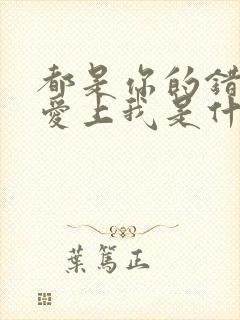 都是你的错
爱上我是什
葉篤正